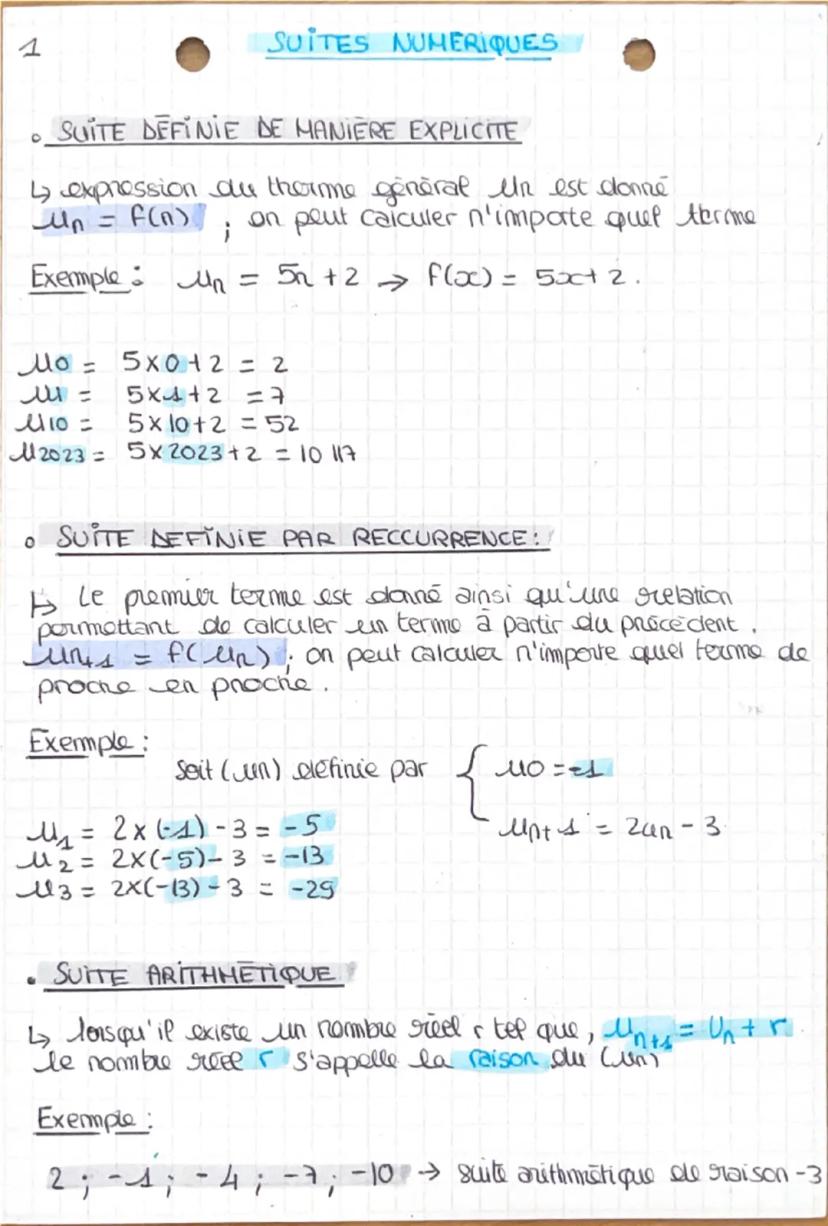 1
SUITES NUMÉRIQUES
SUITE DÉFINIE DE MANIÈRE EXPLICITE
↳ expression du therme général Un est donné
Un = f(n) ; on peut calculer n'importe quel terme
Exemple : Un = 5n + 2 → f(x) = 5x + 2.
U0 = 5x0+2 = 2
U1 = 5x1+2 = 7
U10 = 5x10+2 = 52
U2023 = 5x2023+2 = 10 117
SUITE DEFINIE PAR RECCURRENCE :
↳ Le premier terme est donné ainsi qu'une relation
permettant de calculer un terme à partir du précédent.
Un+1 = f(Un) ; on peut calculer n'importe quel terme de
proche en proche.
Exemple :
Soit (Un) définie par { U0 = -1
Un+1 = 2Un - 3
U1 = 2x(-1) - 3 = -5
U2 = 2x(-5) - 3 = -13
U3 = 2x(-13) - 3 = -29
SUITE ARITHMÉTIQUE
↳ lorsqu'il existe un nombre réel r tel que, Un+1 = Un + r
le nombre réel r s'appelle la raison du (Un)
Exemple :
2 ; -1 ; -4 ; -7 ; -10 → suite arithmétique de raison -3